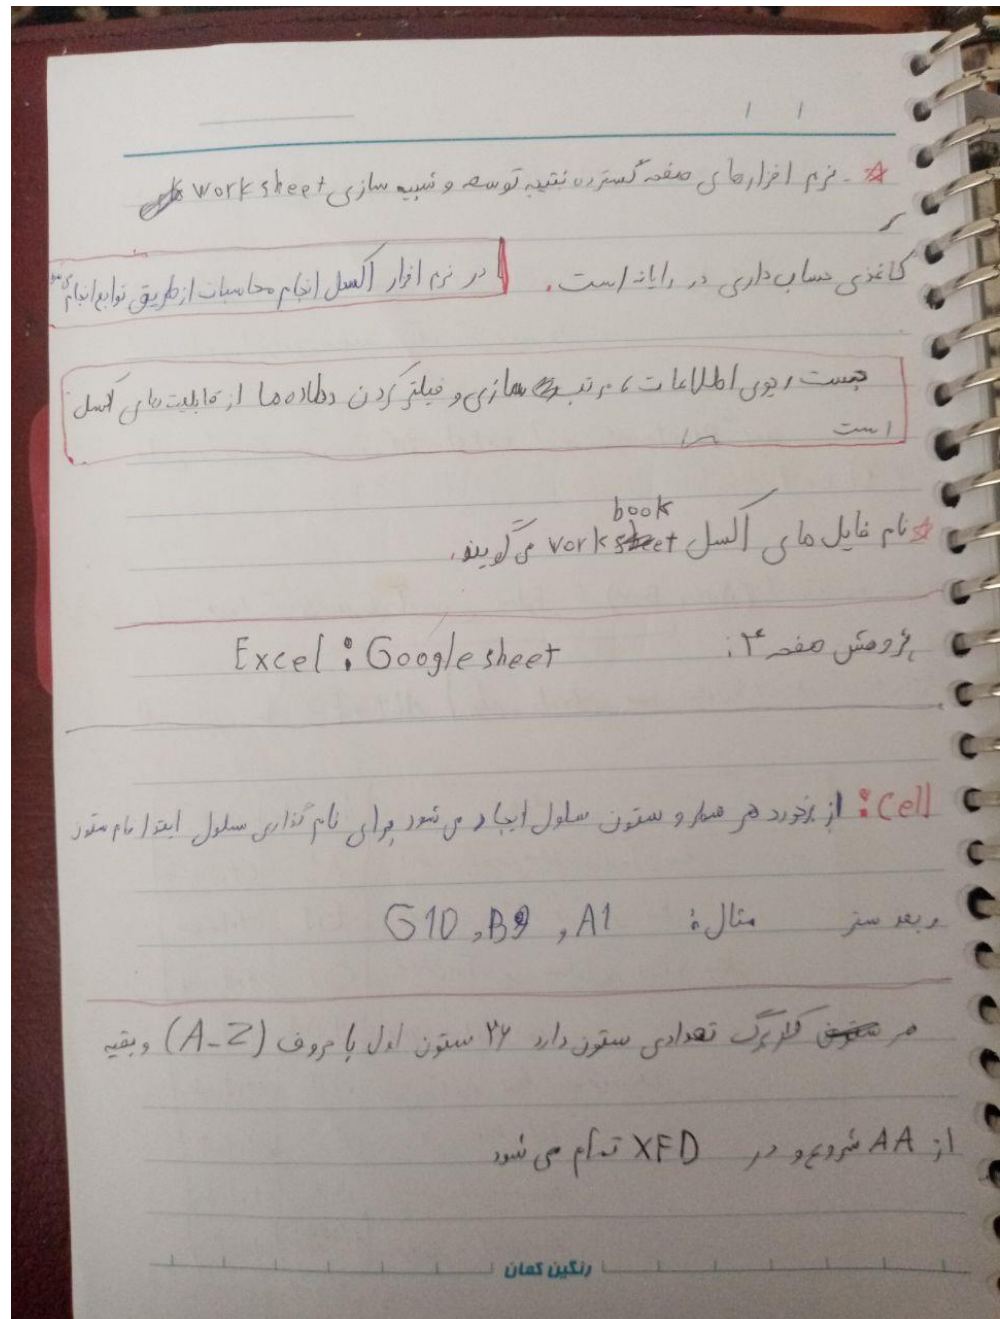 / /
☆ - نرم افزارهای صفحه گسترده نتیجه توسعه و شبیه سازی worksheet
کاغذی حساب داری در رایانه است.
در نرم افزار اکسل انجام محاسبات از طریق توابع انجام می شود
جست و جوی اطلاعات، مرتب سازی و فیلتر کردن داده ها از قابلیت های اکسل
است
book
☆ نام فایل های اکسل work sheet می گویند.
پژوهش صفحه ۴:
Excel : Google sheet
Cell : از برخورد هر سطر و ستون سلول ایجاد می شود برای نام گذاری سلول ابتدا نام ستون
و بعد سطر مثال: A1 , B9 , G10
هر کاربرگ تعدادی ستون دارد ۲۶ ستون اول با حروف (A-Z) و بقیه
از AA شروع و در XFD تمام می شود
رنگین کمان